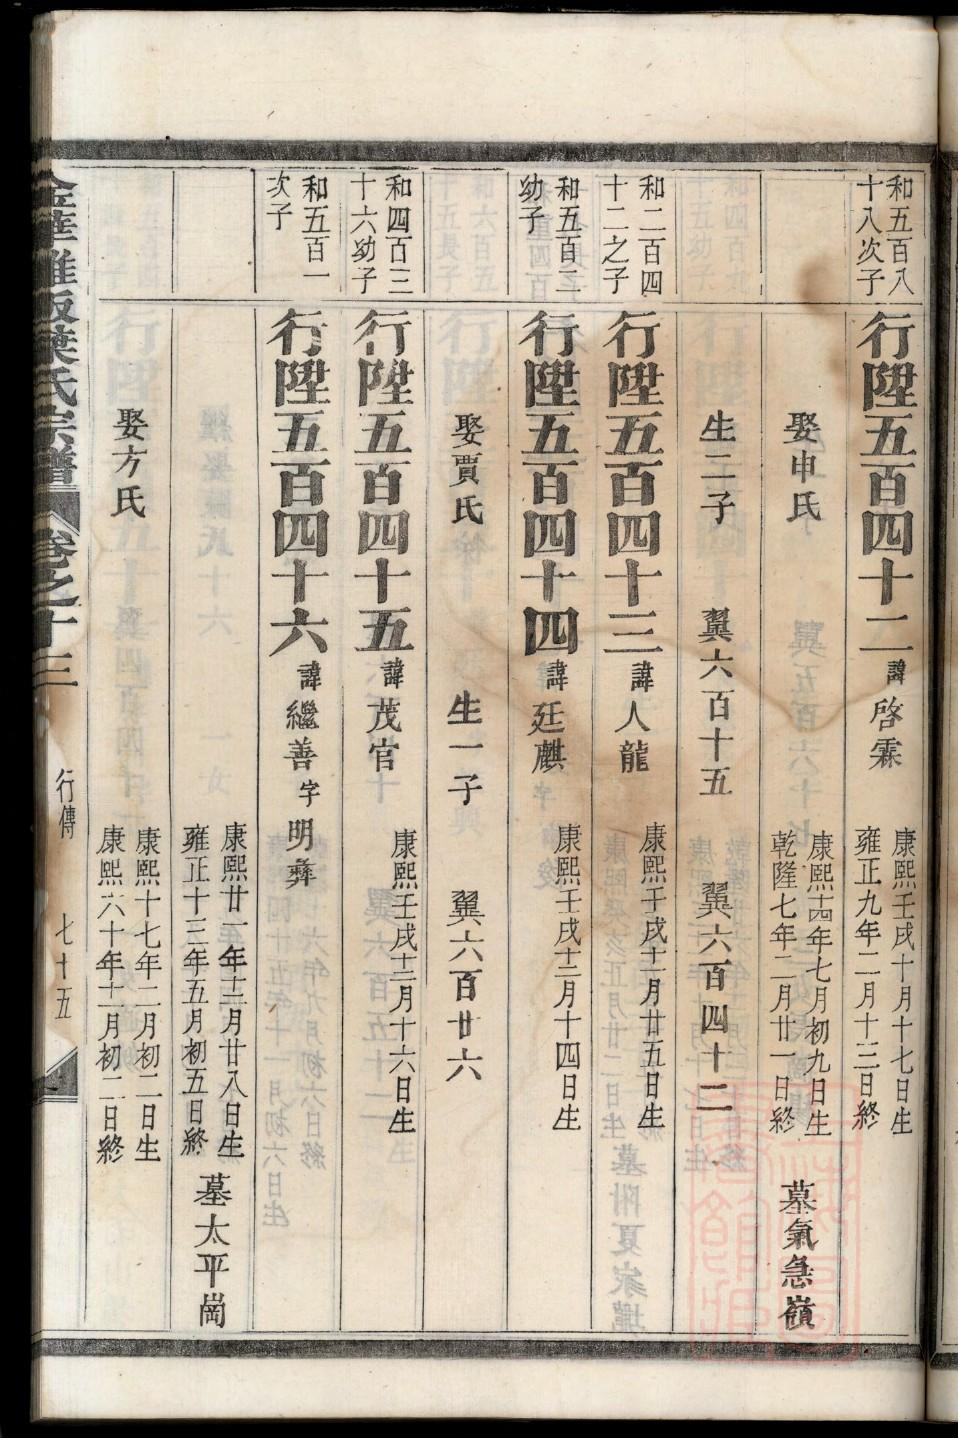 和五百八
十八次子
行陞五百四十二
諱
啓霖
康熙壬戌十月十七日生
雍正九年二月十三日終
娶申氏
康熙十四年七月初九日生
乾隆七年二月廿一日終
墓氣急嶺
生二子
翼六百十五
翼六百四十二
和二百四
十二之子
行陞五百四十三
諱
人龍
康熙壬戌十一月廿五日生
和五百二
幼子
行陞五百四十四
諱
廷麒
康熙壬戌十二月十四日生
娶賈氏
生一子
翼六百廿六
和四百三
十六幼子
行陞五百四十五
諱
茂官
康熙壬戌十二月十六日生
和五百一
次子
行陞五百四十六
諱
繼善
字
明彝
康熙廿一年十二月廿八日生
雍正十三年五月初五日終
墓太平崗
娶方氏
康熙十七年二月初二日生
康熙六十年十一月初二日終
宗譜
卷之十三
行傳
七十五